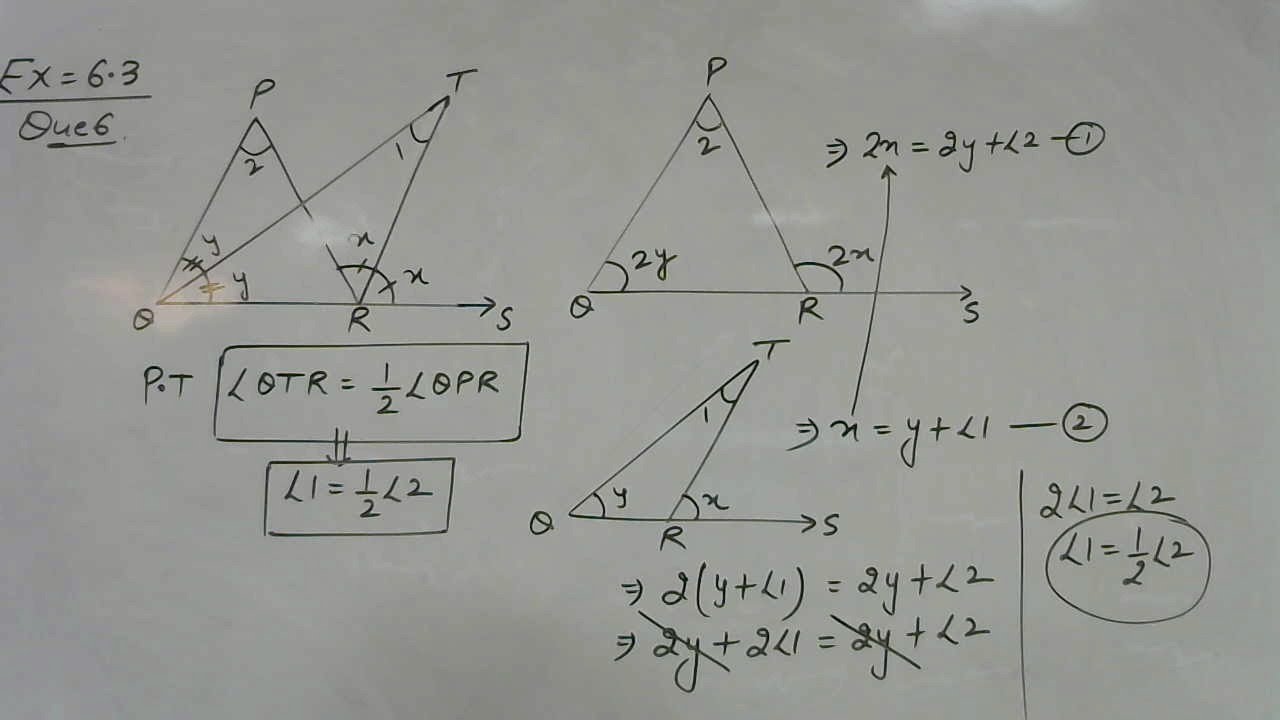 Ex = 6.3
Que 6.
P
T
2
1
y
y
x
x
Q
R
S
P.T ∠QTR = 1/2 ∠QPR
⇓
∠1 = 1/2 ∠2
P
2
2y
2x
Q
R
S
⇒ 2x = 2y + ∠2 — ①
T
1
y
x
Q
R
S
⇒ x = y + ∠1 — ②
⇒ 2(y + ∠1) = 2y + ∠2
⇒ 2y + 2∠1 = 2y + ∠2
2∠1 = ∠2
∠1 = 1/2 ∠2